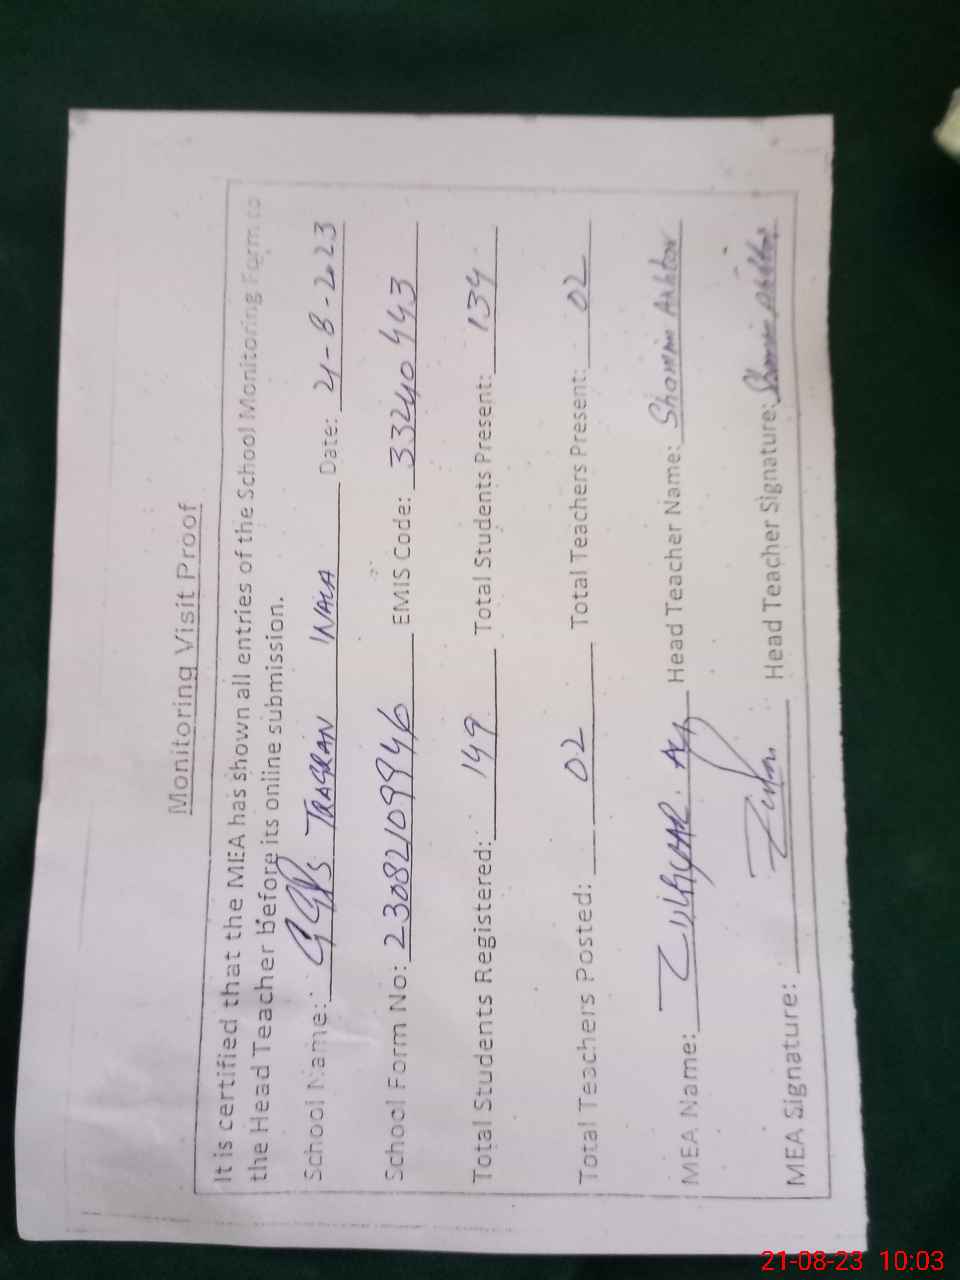 Monitoring Visit Proof
It is certified that the MEA has shown all entries of the School Monitoring Form to
the Head Teacher before its online submission.
School Name: GGPS TRAGRAN WALA Date: 21-8-2023
School Form No: 23082109946 EMIS Code: 33240443
Total Students Registered: 149 Total Students Present: 134
Total Teachers Posted: 02 Total Teachers Present: 02
MEA Name: Head Teacher Name: Shamim Akhtar
MEA Signature: Head Teacher Signature: Shamim Akhtar
21-08-23 10:03